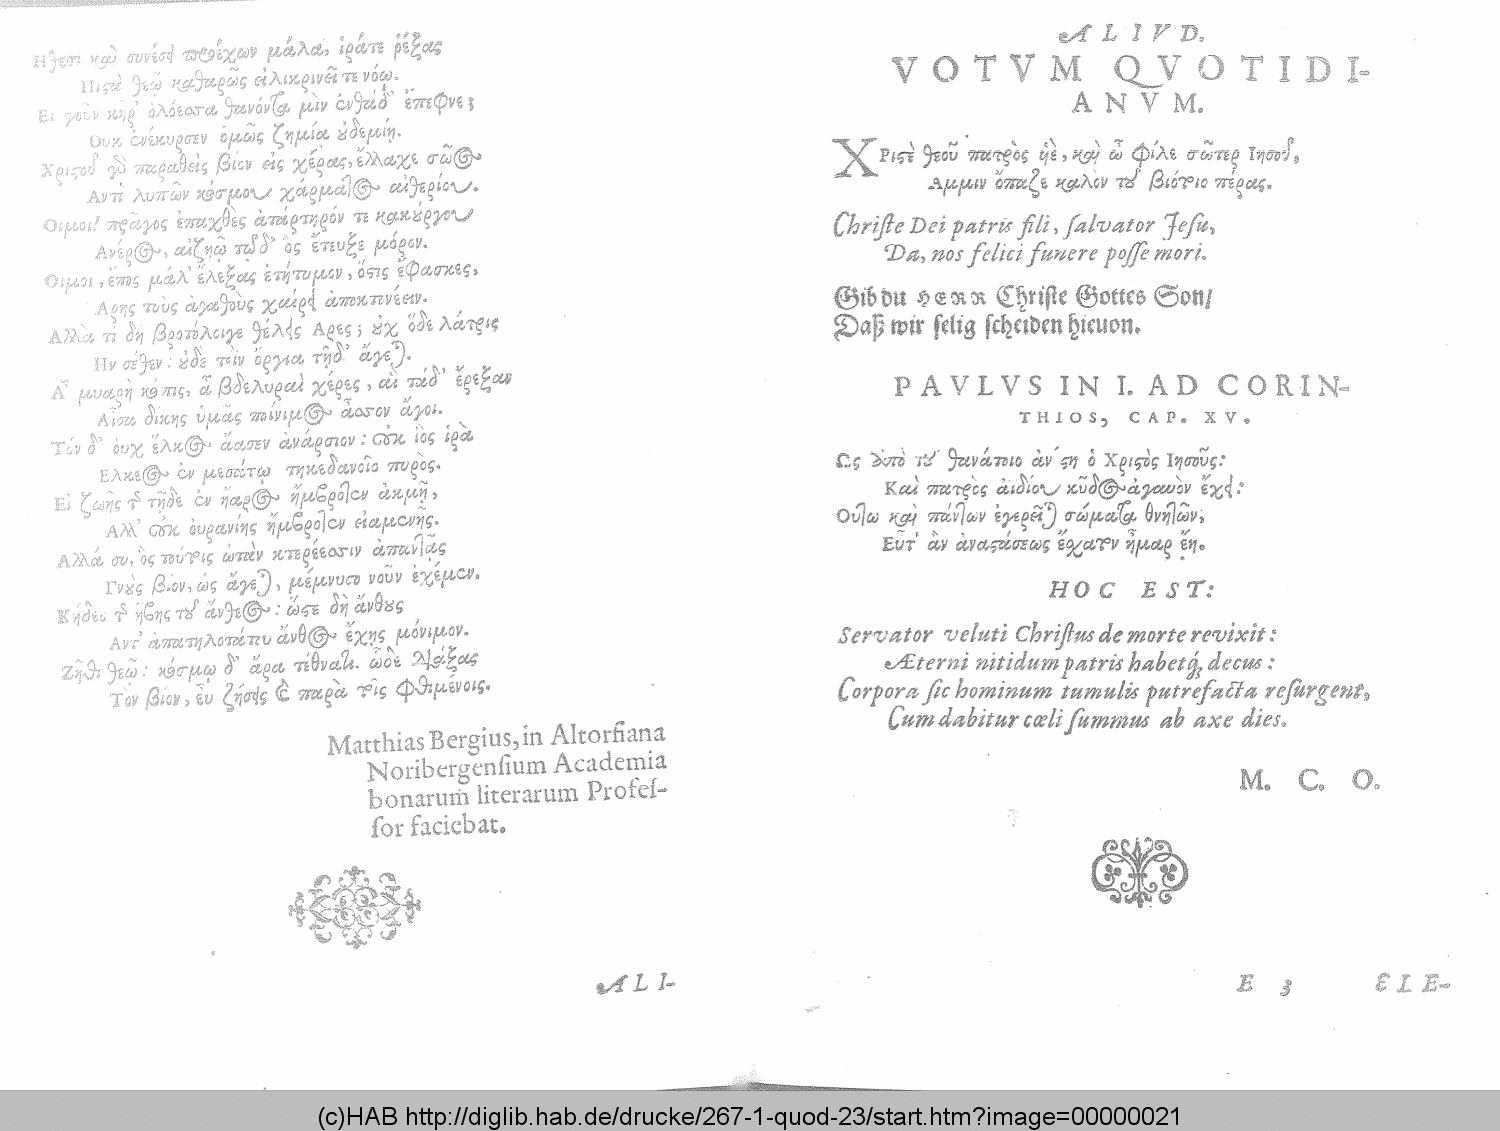 Ηθεσι καὶ συνέσει προέχων μάλα, ἱρά τε ῥέξας
Πιστὰ θεῷ καθαρῶς εἰλικρινεῖ τε νόῳ.
Ει γοῦν κὴρ ὀλόεσσα θανόντα μὶν ἐνθάδ' ἔπεφνε;
Ουκ ἐνέκυρσεν ὁμῶς ζημίᾳ οὐδεμίῃ.
Χριστοῦ γὸ παραθεὶς βίον εἰς χέρας, ἔλλαχε σῶος
Αντὶ λυπῶν κόσμου χάρματος αἰθερίου.
Οιμοι! πρᾶγος ἐπαχθὲς ἀπάρτηρόν τε κακούργου
Ανέρος, αἰζηῷ τῷδ' ὃς ἔτευξε μόρον.
Οιμοι, ἔπος μάλ' ἔλεξας ἐτήτυμον, ὅστις ἔφασκες,
Αρης τοὺς ἀγαθοὺς χαίρει ἀποκτινέειν.
Αλλὰ τί δὴ βροτόλοιγε θέλεις Αρες; οὐχ ὅδε λάτρις
Ην σέθεν: οὐδὲ τεὶν ὄργια τῆδ' ἄγεται.
Α μυαρὴ κόπις, ἆ βδελυραὶ χέρες, αἳ τάδ' ἔρεξαν
Αἶσα δίκης ὑμᾶς ποίνιμος ἆσσον ἄγοι.
Τόν δ' οὐχ ἕλκος ἄασεν ἀνάρσιον: οὐκ ἰὸς ἱρὰ
Ελκεος ἐν μεσάτῳ τηκεδανοῖο πυρός.
Εἰ ζωῆς τῆς τῆδε ἐν ἤαρος ἤμβροτεν ἀκμῇ,
Αλλ' οὐκ οὐρανίης ἤμβροτεν εἰαμενῆς.
Αλλά συ, ὃς τούτοις ὠπὰν κτερέεσσιν ἁπάντας
Γνοὺς βίον, ὡς ἄγεται, μέμνυσο νοῦν ἐχέμεν.
Κήδεο τῆς ἥβης τοῦ ἄνθεος: ὥστε δὴ ἄνθους
Αντ' ἀπατηλοτάτου ἄνθος ἔχης μόνιμον.
Ζῆθι θεῷ: κόσμῳ δ' ἄρα τέθναθι. ὧδε λήξας
Τὸν βίον, εὖ ζήσεις καὶ παρὰ τοῖς φθιμένοις.
Matthias Bergius, in Altorfiana
Noribergensium Academia
bonarum̄ literarum Profes-
sor faciebat.
ALI-
ALIVD.
VOTVM QVOTIDI-
ANVM.
ΧΡιστὲ θεοῦ πατρὸς ὑιέ, καὶ ὦ φίλε σῶτερ Ιησοῦ,
Αμμιν ὄπαζε καλὸν τοῦ βιότοιο πέρας.
Christe Dei patris fili, salvator Jesu,
Da, nos felici funere posse mori.
Gib du HERR Christe Gottes Son/
Daß wir selig scheiden hieuon.
PAVLVS IN I. AD CORIN-
THIOS, CAP. XV.
Ως ὑπὸ τοῦ θανάτοιο ἀνέστη ὁ Χριστὸς Ιησοῦς:
Καὶ πατρὸς ἀιδίου κῦδος ἀγαυὸν ἔχει:
Ούτω καὶ πάντων ἐγερεῖται σώματα θνητῶν,
Εὖτ' ἂν ἀναστάσεως ἔσχατον ἦμαρ ἔῃ.
HOC EST:
Servator veluti Christus de morte revixit:
Æterni nitidum patris habetq́; decus:
Corpora sic hominum tumulis putrefacta resurgent,
Cum dabitur cœli summus ab axe dies.
M. C. O.
E 3 ELE-
(c)HAB http://diglib.hab.de/drucke/267-1-quod-23/start.htm?image=00000021